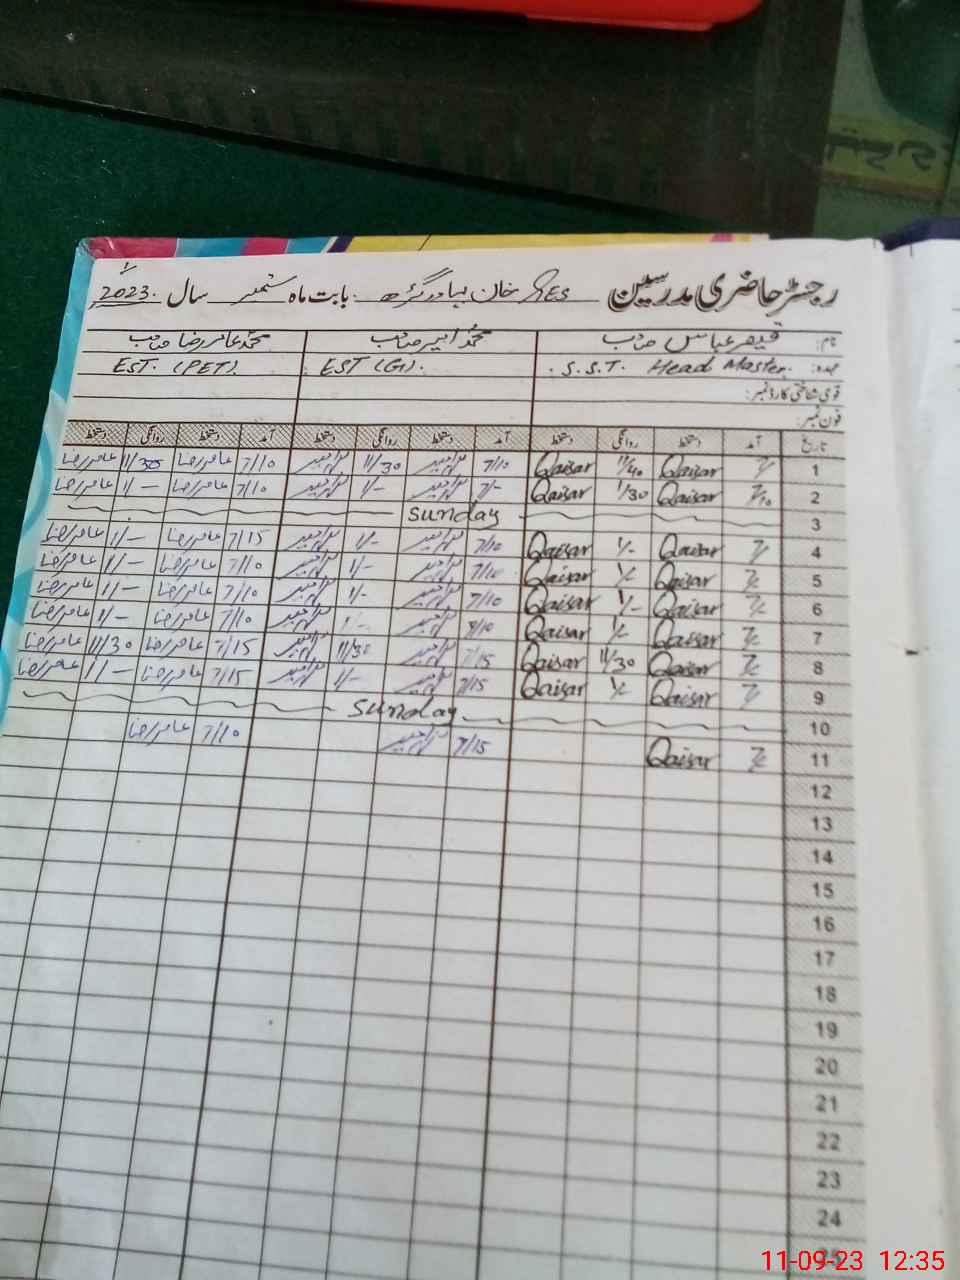 رجسٹر حاضری مدرسین GES خان بہادر گڑھ بابت ماہ ستمبر سال 2023
نام: قیصر عباس صاحب محمد امیر صاحب محمد عامر رضا صاحب
عہدہ: S.S.T. Head Master. EST (G). EST. (PET).
قومی شناختی کارڈ نمبر:
فون نمبر:
تاریخ آمد دستخط روانگی دستخط آمد دستخط روانگی دستخط آمد دستخط روانگی دستخط
1 7/ Qaisar 11/40 Qaisar 7/10 11/30 7/10 عامر رضا 11/30 عامر رضا
2 7/10 Qaisar 1/30 Qaisar 7/- 1/- 7/10 عامر رضا 1/- عامر رضا
3 Sunday
4 7/ Qaisar 1/- Qaisar 7/10 1/- 7/15 عامر رضا 1/- عامر رضا
5 Qaisar 1/- Qaisar 7/10 1/- 7/10 عامر رضا 1/- عامر رضا
6 Qaisar 1/- Qaisar 7/10 1/- 7/10 عامر رضا 1/- عامر رضا
7 Qaisar 1/- Qaisar 7/10 7/10 عامر رضا 1/- عامر رضا
8 Qaisar 11/30 Qaisar 7/15 11/30 7/15 عامر رضا 11/30 عامر رضا
9 Qaisar 1/- Qaisar 7/15 1/- 7/15 عامر رضا 1/- عامر رضا
10 Sunday
11 Qaisar 7/15 7/10 عامر رضا
12
13
14
15
16
17
18
19
20
21
22
23
24
25
11-09-23 12:35